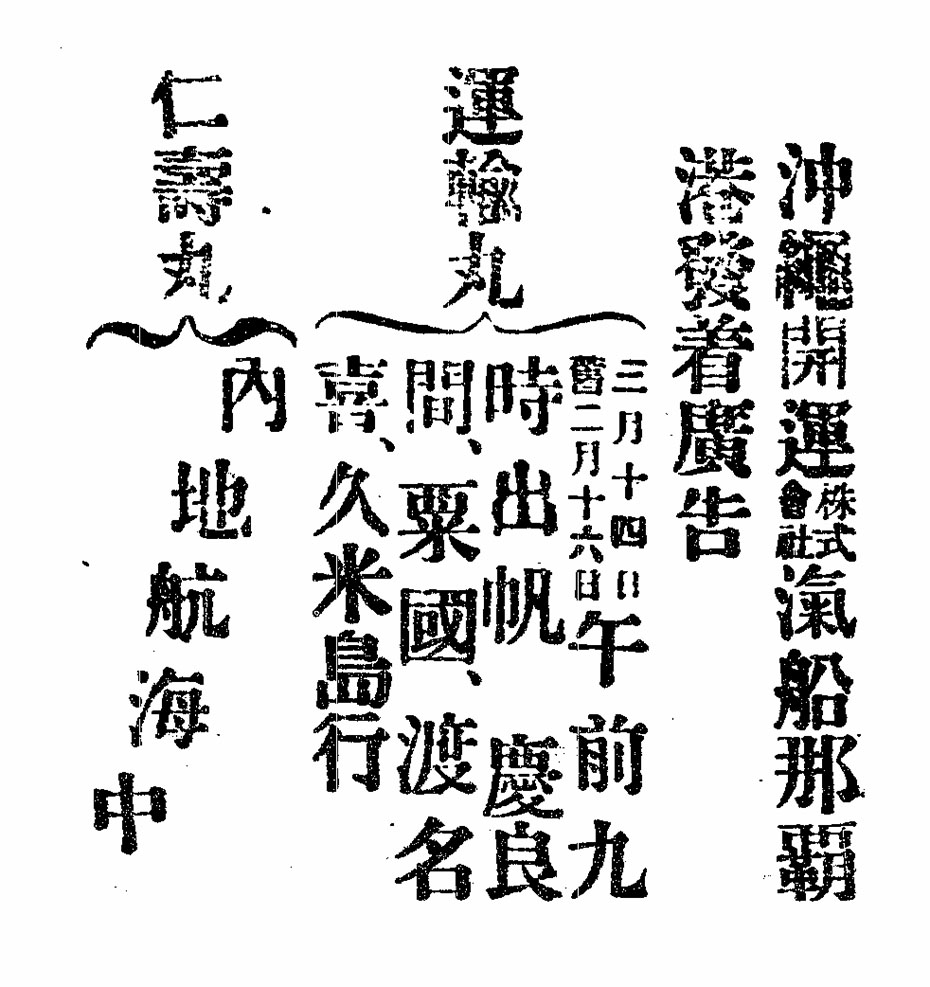 沖繩開運株式會社汽船那覇
港發着廣告
運輸丸
三月十四日
舊二月十六日
午前九
時出帆 慶良
間、粟國、渡名
喜、久米島行
仁壽丸
內地航海中